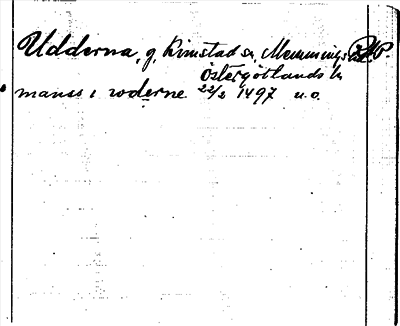 Udderna, g, Kimstad sn, Memmings hd
Östergötlands ln
manss i vderne 22/2 1497 u.o.